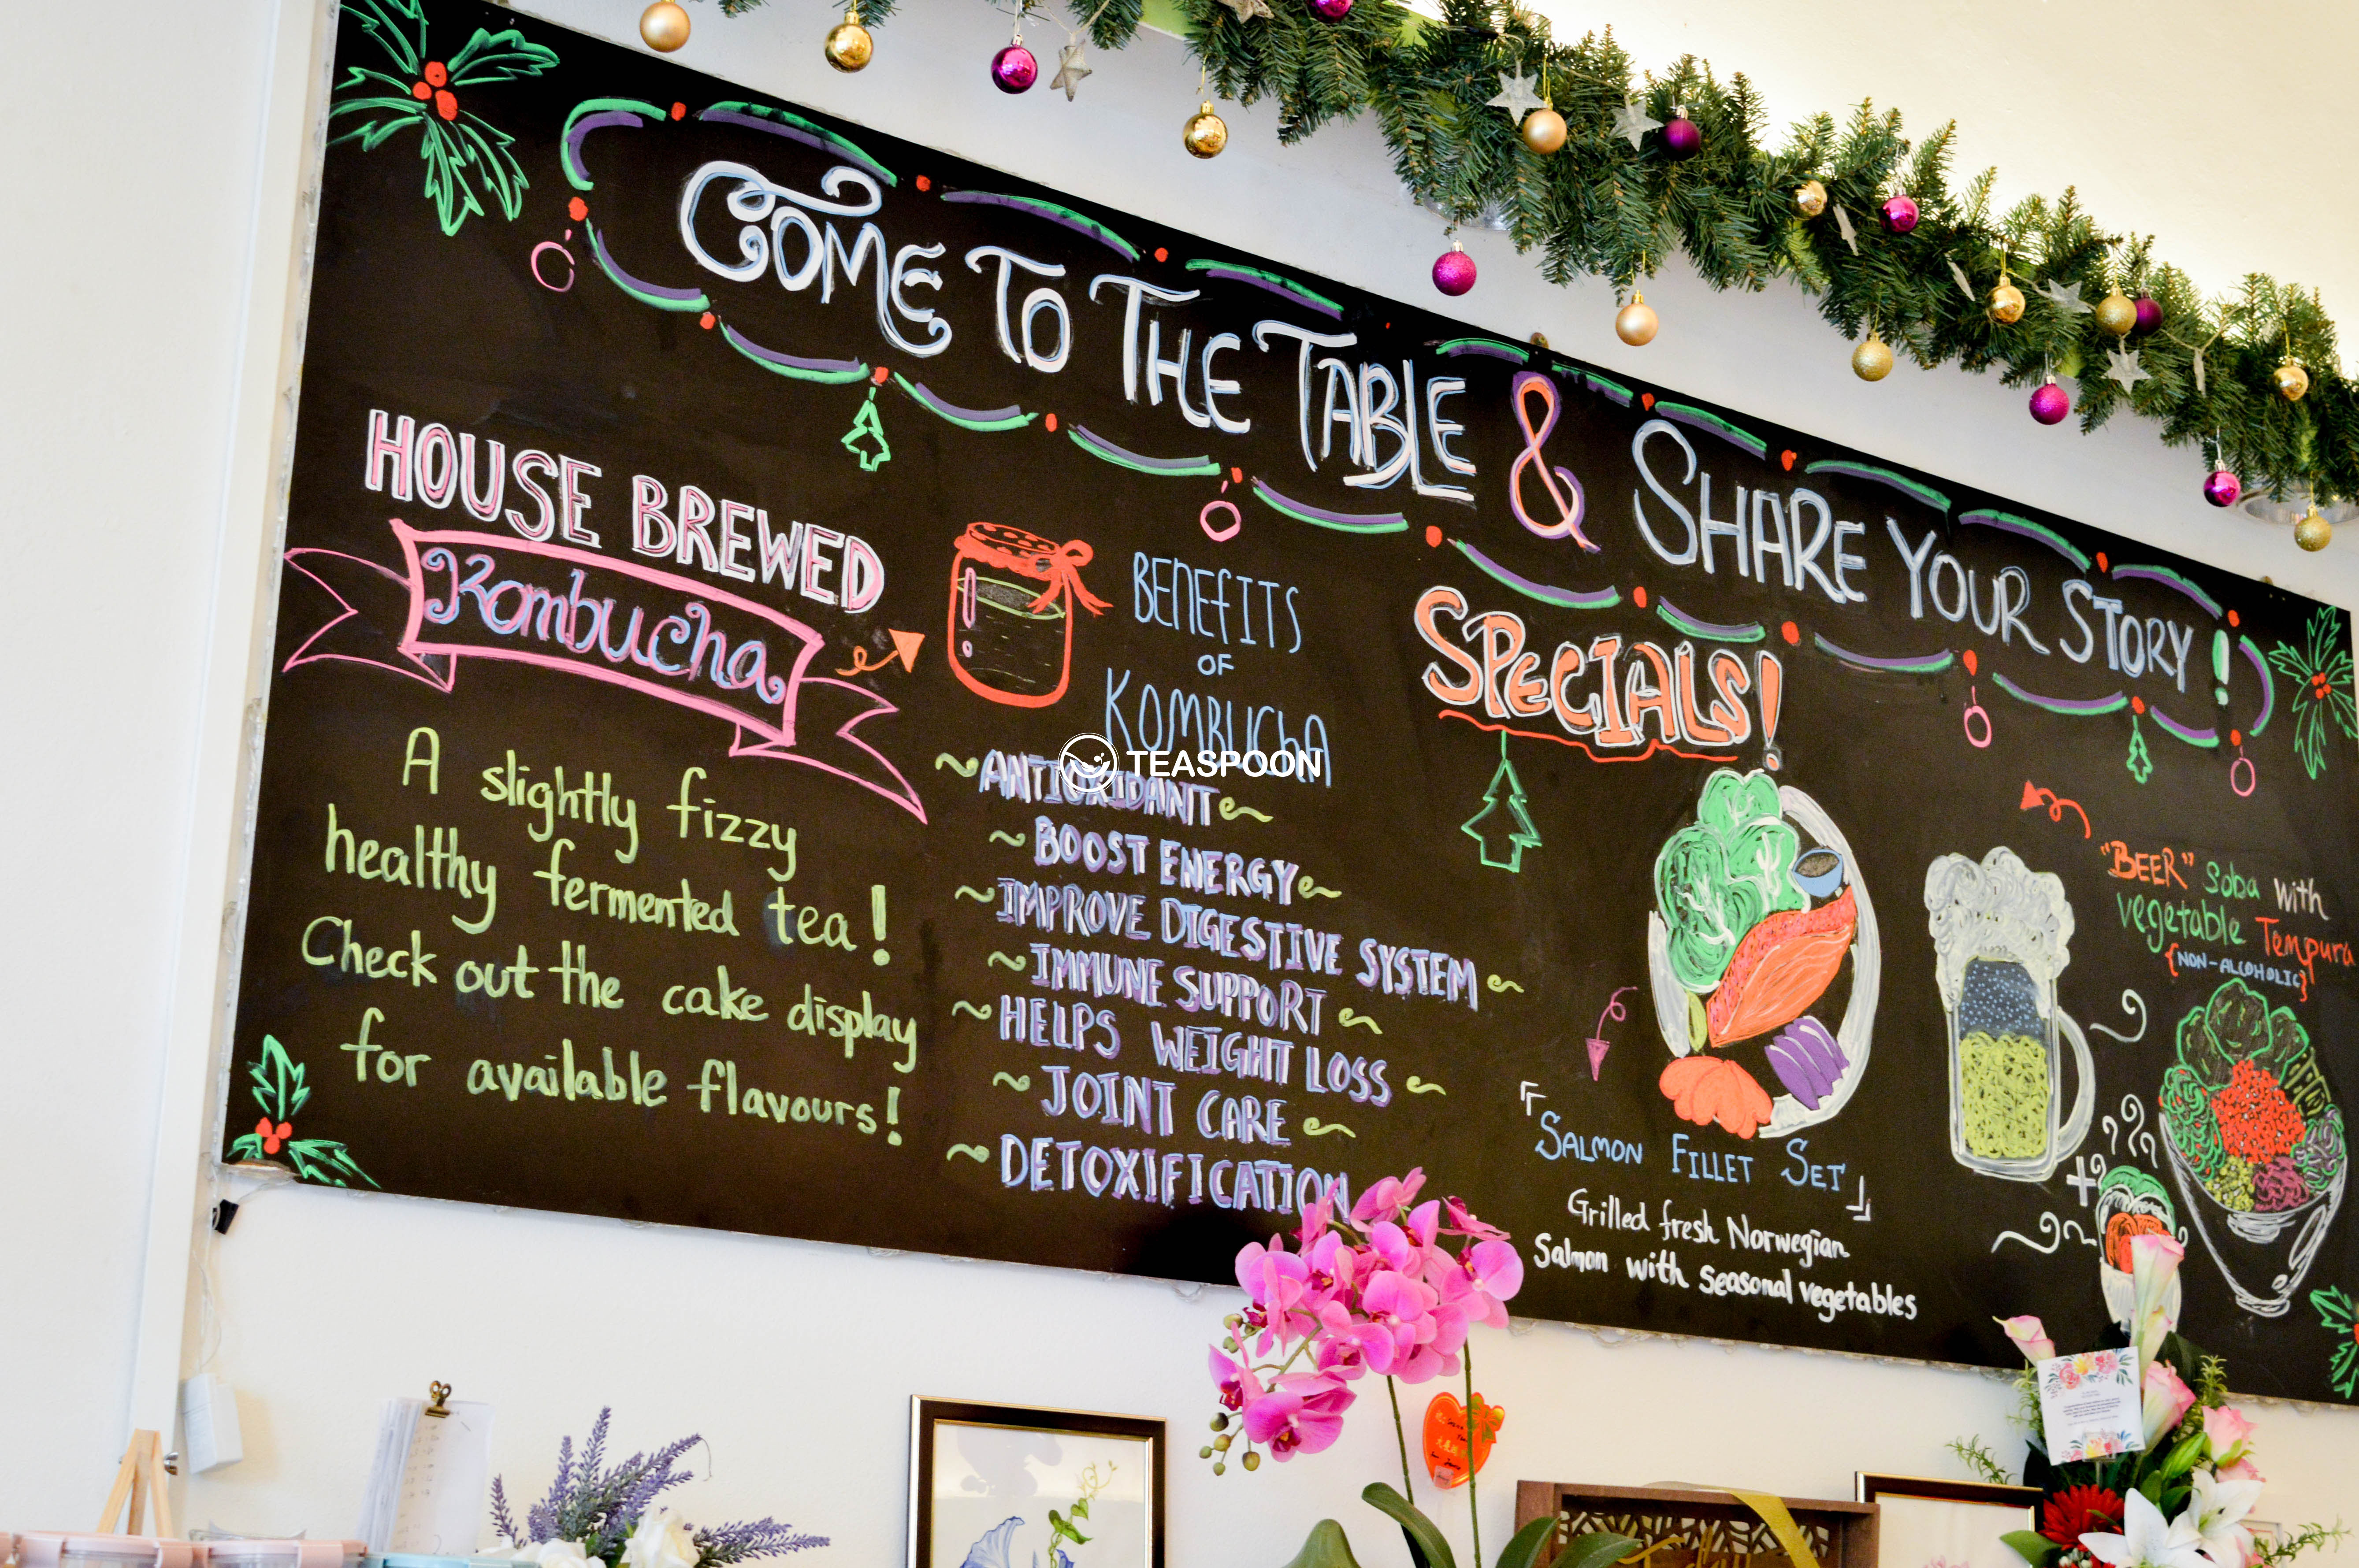 COME TO THE TABLE & SHARE YOUR STORY!
HOUSE BREWED
Kombucha
A slightly fizzy
healthy fermented tea!
Check out the cake display
for available flavours!
BENEFITS
OF
KOMBUCHA
~ANTIOXIDANT~
~BOOST ENERGY~
~IMPROVE DIGESTIVE SYSTEM~
~IMMUNE SUPPORT~
~HELPS WEIGHT LOSS~
~JOINT CARE~
~DETOXIFICATION
TEASPOON
SPECIALS!
『SALMON FILLET SET』
Grilled fresh Norwegian
Salmon with seasonal vegetables
"BEER" Soba with
vegetable Tempura
{NON-ALCOHOLIC}
+